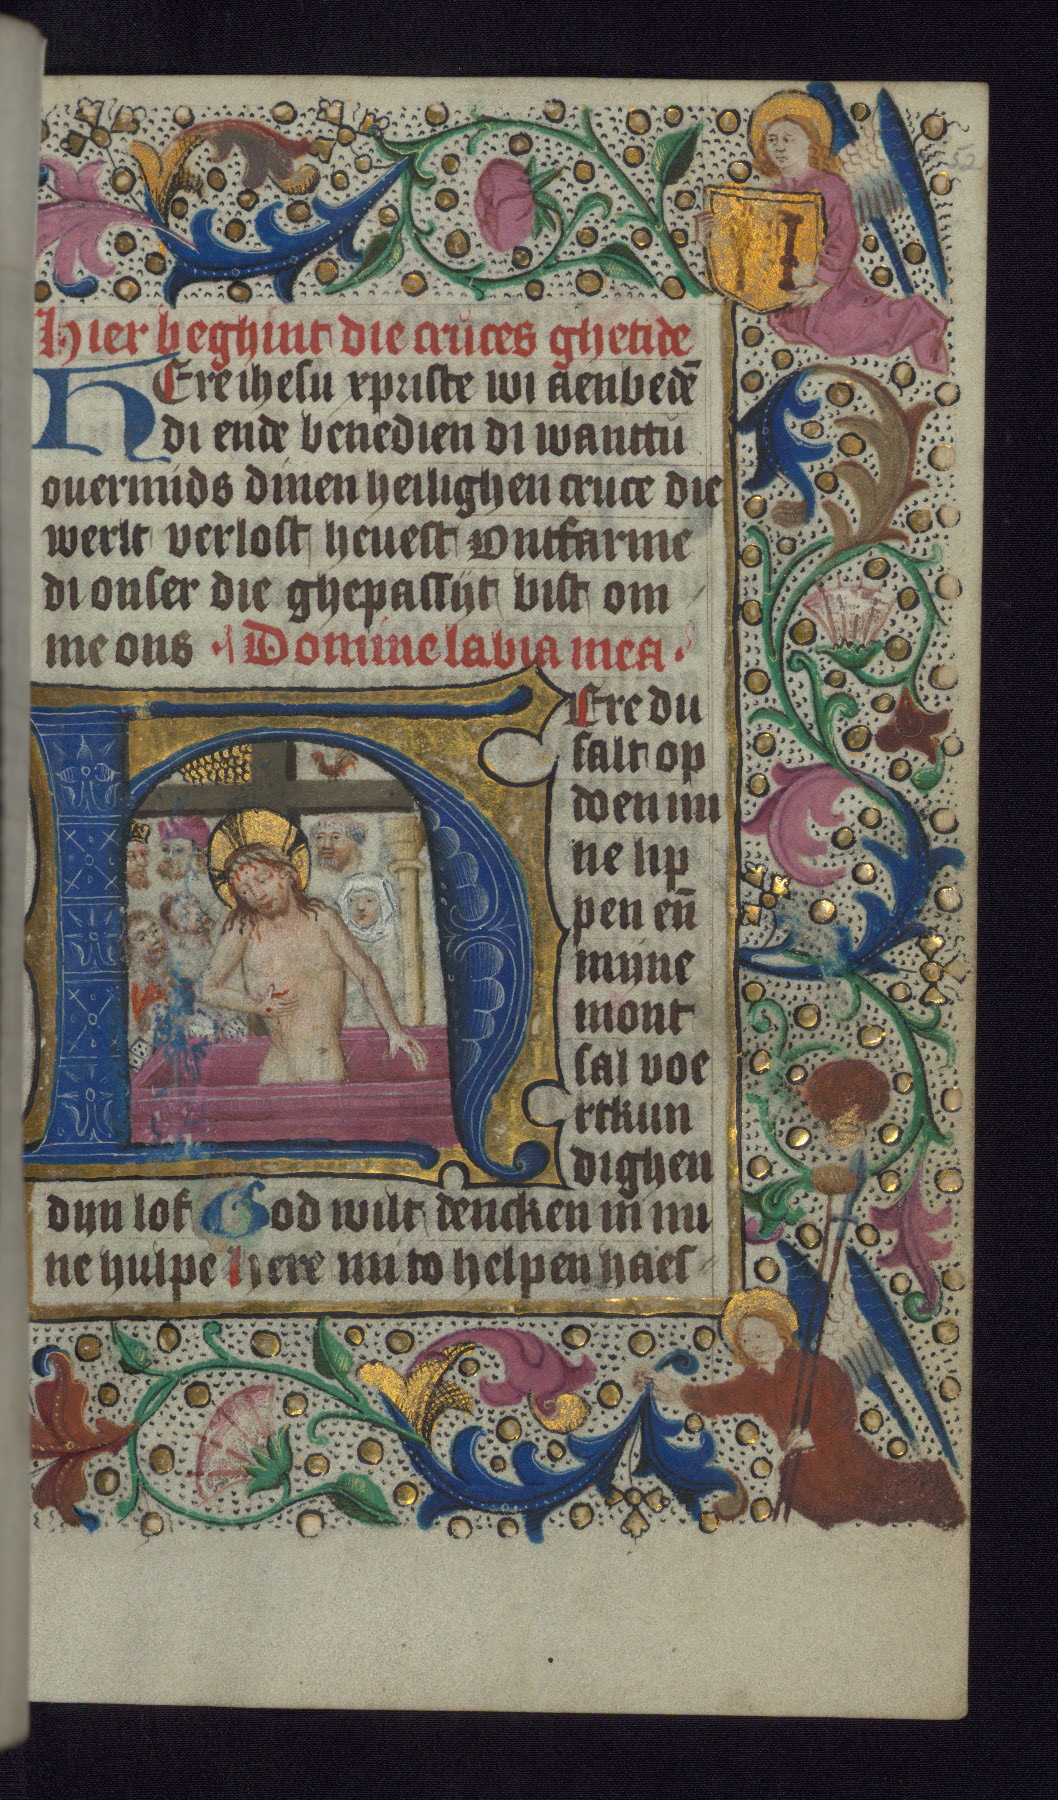 52
Hier beghint die cruces ghetide
HEre ihesu xpriste wi aenbedē
di ende benedien di wanttu
ouermids dinen heilighen cruce die
werlt verlost heuest Ontfarme
di onser die ghepassijt bist om
me ons Domine labia mea
HEre du
salt op
doen mi
ne lip
pen eñ
mijne
mont
sal voe
rtkun
dighen
dijn lof God wilt dencken in mi
ne hulpe here mi to helpen haes